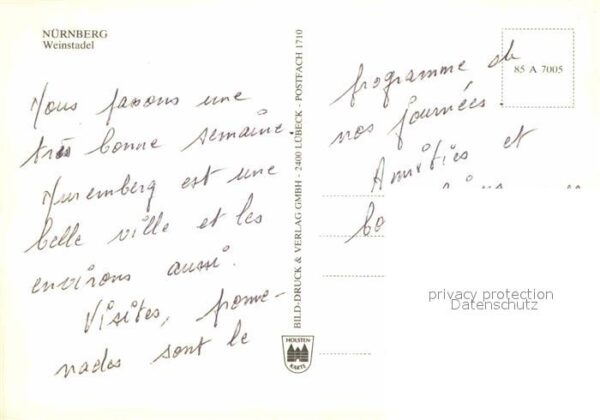 NÜRNBERG
Weinstadel
Nous passons une
très bonne semaine.
Nuremberg est une
belle ville et les
environs aussi.
Visites, prome-
nades sont le
BILD-DRUCK & VERLAG GMBH - 2400 LÜBECK - POSTFACH 1710
HOLSTEN-
KARTE
85 A 7005
programme de
nos journées.
Amitiés et
privacy protection
Datenschutz